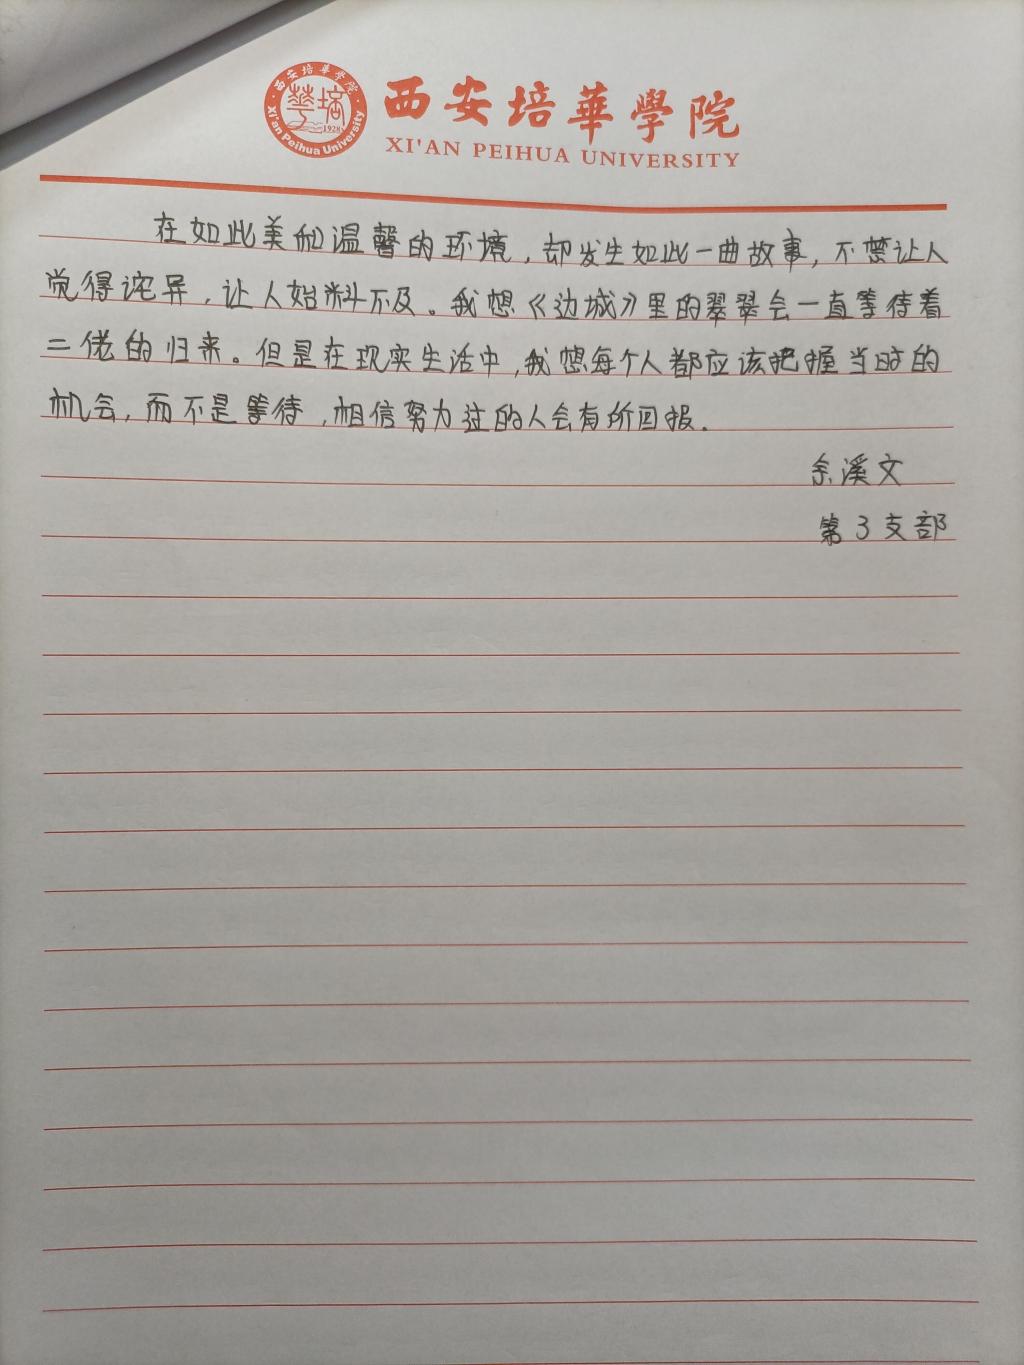 西安培華學院
XI'AN PEIHUA UNIVERSITY
西安培華學院
Xi'an Peihua University
1928
在如此美和温馨的环境，却发生如此一曲故事，不禁让人
觉得诧异，让人始料不及。我想《边城》里的翠翠会一直等待着
二佬的归来。但是在现实生活中，我想每个人都应该把握当时的
机会，而不是等待，相信努力过的人会有所回报。
余溪文
第3支部